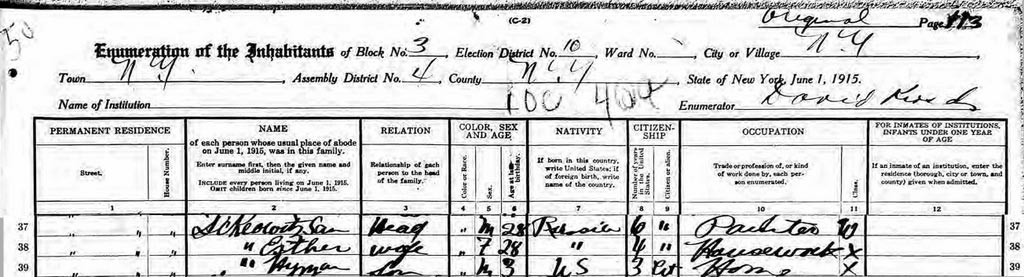 (C-2)
Original Page 113
50
Enumeration of the Inhabitants of Block No. 3, Election District No. 10, Ward No. , City or Village N.Y.
Town N.Y., Assembly District No. 4, County N.Y., State of New York, June 1, 1915.
100 404
Name of Institution Enumerator David
PERMANENT RESIDENCE NAME RELATION COLOR, SEX AND AGE NATIVITY CITIZENSHIP OCCUPATION FOR INMATES OF INSTITUTIONS, INFANTS UNDER ONE YEAR OF AGE
Street. House Number. of each person whose usual place of abode on June 1, 1915, was in this family. Enter surname first, then the given name and middle initial, if any. INCLUDE every person living on June 1, 1915. OMIT children born since June 1, 1915. Relationship of each person to the head of the family. Color or Race. Sex. Age at last birthday. If born in this country, write United States; if of foreign birth, write name of the country. Number of years in the United States. Citizen or alien. Trade or profession, of, or kind of work done by, each person enumerated. Class. If an inmate of an institution, enter the residence (borough, city or town, and county) given when admitted.
1 2 3 4 5 6 7 8 9 10 11 12
37 " " Sam Head " M 28 Russia 6 " W 37
38 " " " Esther wife " F 28 " 4 " Housework X 38
39 " " " Hyman Son " M 3 US 3 Cit Home X 39